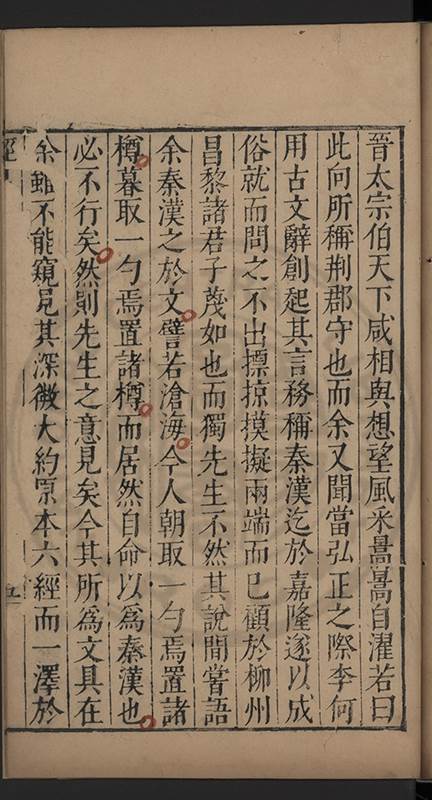 晉太宗伯天下咸相與想望風采暠暠自濯若曰
此向所稱荆郡守也而余又聞當弘正之際李何
用古文辭創起其言務稱秦漢迄於嘉隆遂以成
俗就而問之不出摽掠摸擬兩端而已顧於柳州
昌黎諸君子蔑如也而獨先生不然其說間嘗語
余秦漢之於文譬若滄海今人朝取一勺焉置諸
樽暮取一勺焉置諸樽而居然自命以為秦漢也
必不行矣然則先生之意見矣今其所為文具在
余雖不能窺見其深微大約原本六經而一澤於